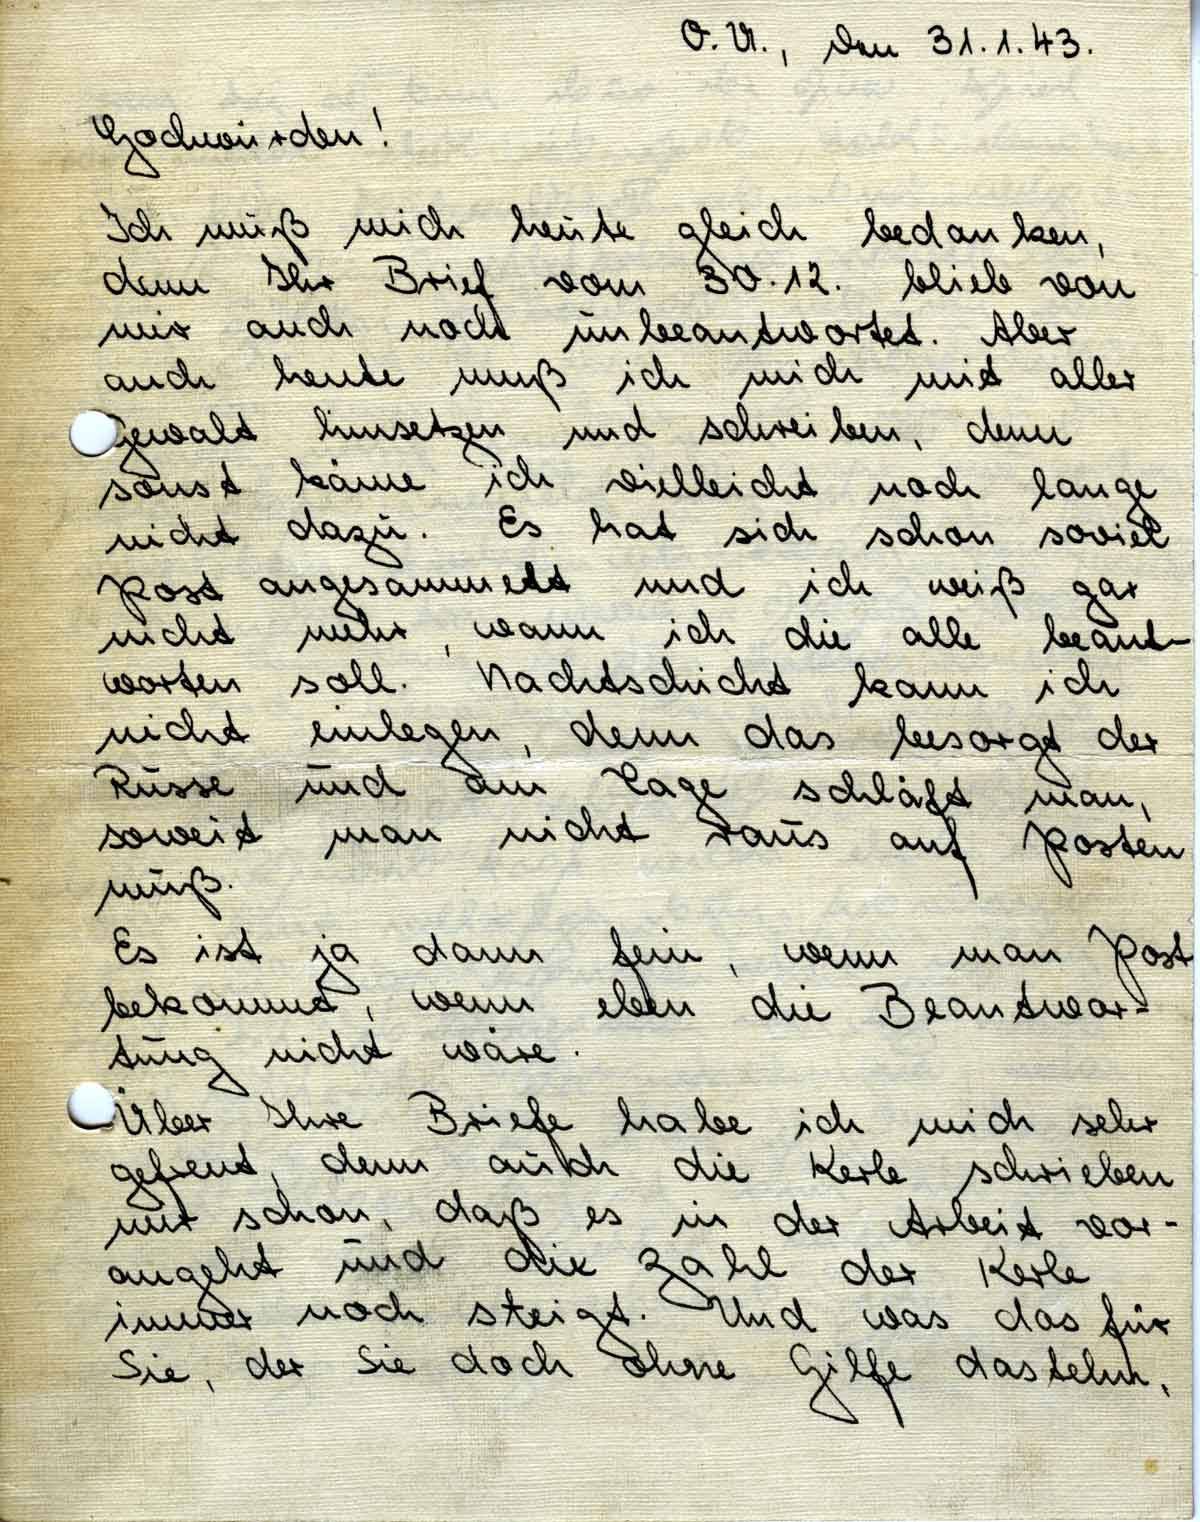 O.U., den 31.1.43.
Hochwürden!
Ich muß mich heute gleich bedanken,
denn Ihr Brief vom 30.12. blieb von
mir auch noch unbeantwortet. Aber
auch heute muß ich mich mit aller
Gewalt hinsetzen und schreiben, denn
sonst käme ich vielleicht noch lange
nicht dazu. Es hat sich schon soviel
Post angesammelt und ich weiß gar
nicht mehr, wann ich die alle beant-
worten soll. Nachtschicht kann ich
nicht einlegen, denn das besorgt der
Russe und am Tage schläft man,
soweit man nicht raus auf Posten
muß.
Es ist ja dann fein, wenn man Post
bekommt, wenn eben die Beantwor-
tung nicht wäre.
Über Ihre Briefe habe ich mich sehr
gefreut, denn auch die Kerle schrieben
mir schon, daß es in der Arbeit vor-
angeht und die Zahl der Kerle
immer noch steigt. Und was das für
Sie, der Sie doch ohne Hilfe dastehn,